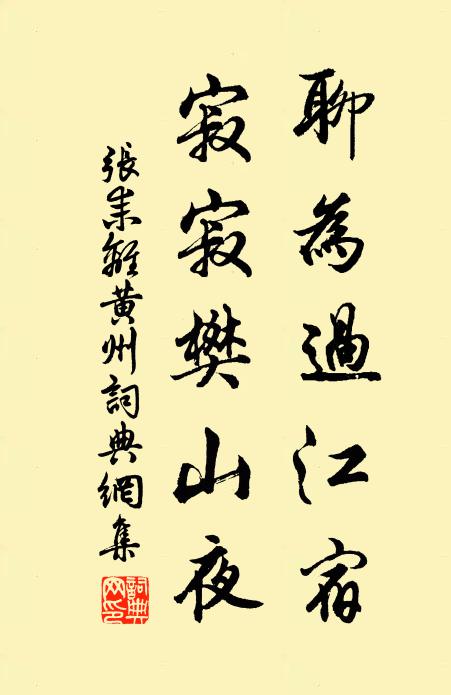 聊為過江宿
寂寂樊山夜
張耒離黃州詞典網集
詞典
网印